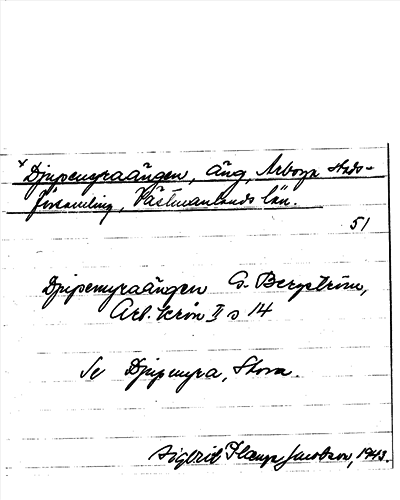 x Djupemyraängen, äng, Arboga Stads-
församling, Västmanlands län.
51
Djupemyraängen G. Bergström,
Arb. krön II s 14
Se Djupmyra, Stora.
Sigfrid Jacobson, 1943.